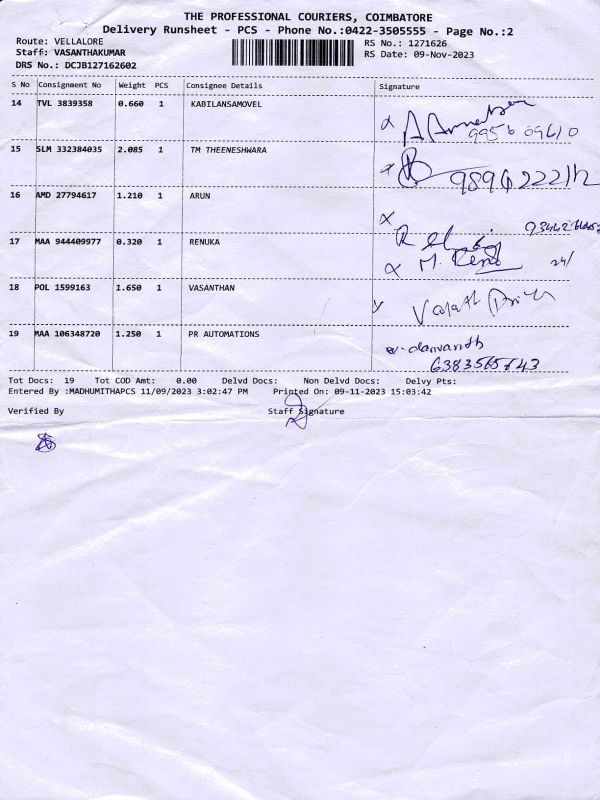 THE PROFESSIONAL COURIERS, COIMBATORE
Delivery Runsheet - PCS - Phone No.:0422-3505555 - Page No.:2
Route: VELLALORE
RS No.: 1271626
Staff: VASANTHAKUMAR
RS Date: 09-Nov-2023
DRS No.: DCJB127162602
S No Consignment No Weight PCS Consignee Details Signature
14 TVL 3839358 0.660 1 KABILANSAMOVEL
15 SLM 332384035 2.085 1 TM THEENESHWARA
16 AMD 27794617 1.210 1 ARUN
17 MAA 944409977 0.320 1 RENUKA
M.
18 POL 1599163 1.650 1 VASANTHAN
19 MAA 106348720 1.250 1 PR AUTOMATIONS
Tot Docs: 19 Tot COD Amt: 0.00 Delvd Docs: Non Delvd Docs: Delvy Pts:
Entered By :MADHUMITHAPCS 11/09/2023 3:02:47 PM Printed On: 09-11-2023 15:03:42
Verified By Staff Signature